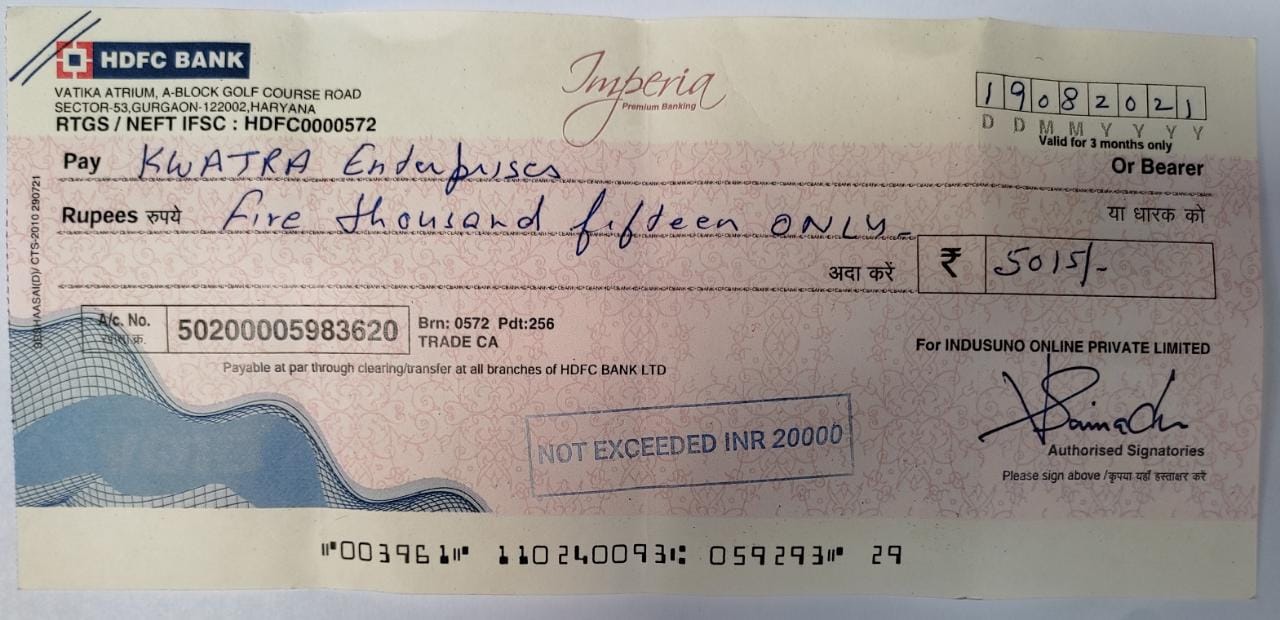 HDFC BANK
Imperia
Premium Banking
VATIKA ATRIUM, A-BLOCK GOLF COURSE ROAD
SECTOR-53,GURGAON-122002,HARYANA
RTGS / NEFT IFSC : HDFC0000572
19082021
D D M M Y Y Y Y
Valid for 3 months only
Pay KWATRA Enterprises Or Bearer
Rupees रुपये five thousand fifteen ONLY- या धारक को
अदा करें ₹ 5015/-
CTS-2010 290721
A/c. No. 50200005983620
Brn: 0572 Pdt:256
TRADE CA
Payable at par through clearing/transfer at all branches of HDFC BANK LTD
For INDUSUNO ONLINE PRIVATE LIMITED
NOT EXCEEDED INR 20000
Authorised Signatories
Please sign above /कृपया यहाँ हस्ताक्षर करें
⑈003961⑈ 110240093⑆ 059293⑈ 29